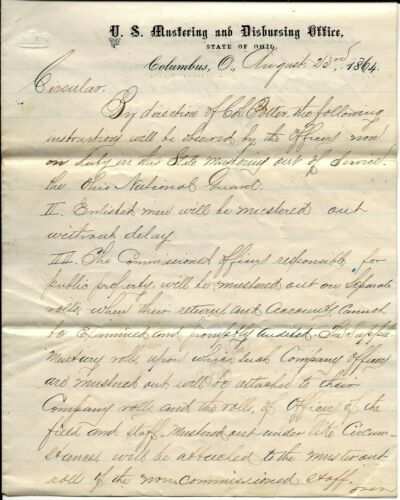 U. S. Mustering and Disbursing Office,
STATE OF OHIO,
Columbus, O., August 23rd 1864.
Circular.
By direction of Col. Potter, the following
instructions will be observed by the Officers now
on duty in this State mustering out of Service
the Ohio National Guard.
II. Enlisted men will be mustered out
without delay
III. The Commissioned officers responsible for
public property, will be mustered out on Separate
rolls, when their returns and Accounts cannot
be Examined and promptly audited. The Supple
Mentary rolls upon which such Company Officers
are mustered out will be attached to their
Company rolls and the rolls of Officers of the
field and staff mustered out under like Circum-
stances will be attached to the muster out
rolls of the non-Commissioned Staff.
over